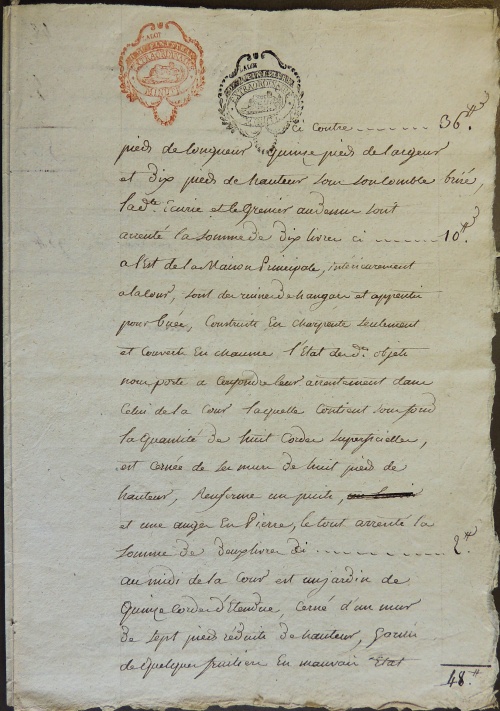 LALOT
EXTRAORDINAIRE
LALOT
EXTRAORDINAIRE
ci Contre ........ 36.ᵗᵗ
pieds de Longueur quinze pieds de Largeur
et Dix pieds de hauteur sous son Comble brisé,
Lad.ᵗᵉ Ecurie et le Grenier audessus sont
arrenté la Somme de Dix livres ci ........ 10.ᵗᵗ
a l'Est de la Maison Principale, intérieurement
a la Cour, sont des ruines de hangars et appentis
pour buée, Construits En charpente Seulement
et Couverts En chaume l'Etat desd.ᵗˢ objets
nous porte a Confondre leur arrentement dans
Celui de la Cour laquelle Contient son fond
la Quantité de huit Cordes Superficielles,
est cernée de ses murs de huit pieds de
hauteur, Renferme un puits,
et une auge En Pierre, le tout arrenté la
Somme de deux livres ci ........ 2.ᵗᵗ
au midi de la Cour est un jardin de
Quinze Cordes d'Etendue, Cerné d'un mur
de Sept pieds réduits de hauteur, Garni
de Quelques fruitiers En mauvais Etat
48.ᵗᵗ